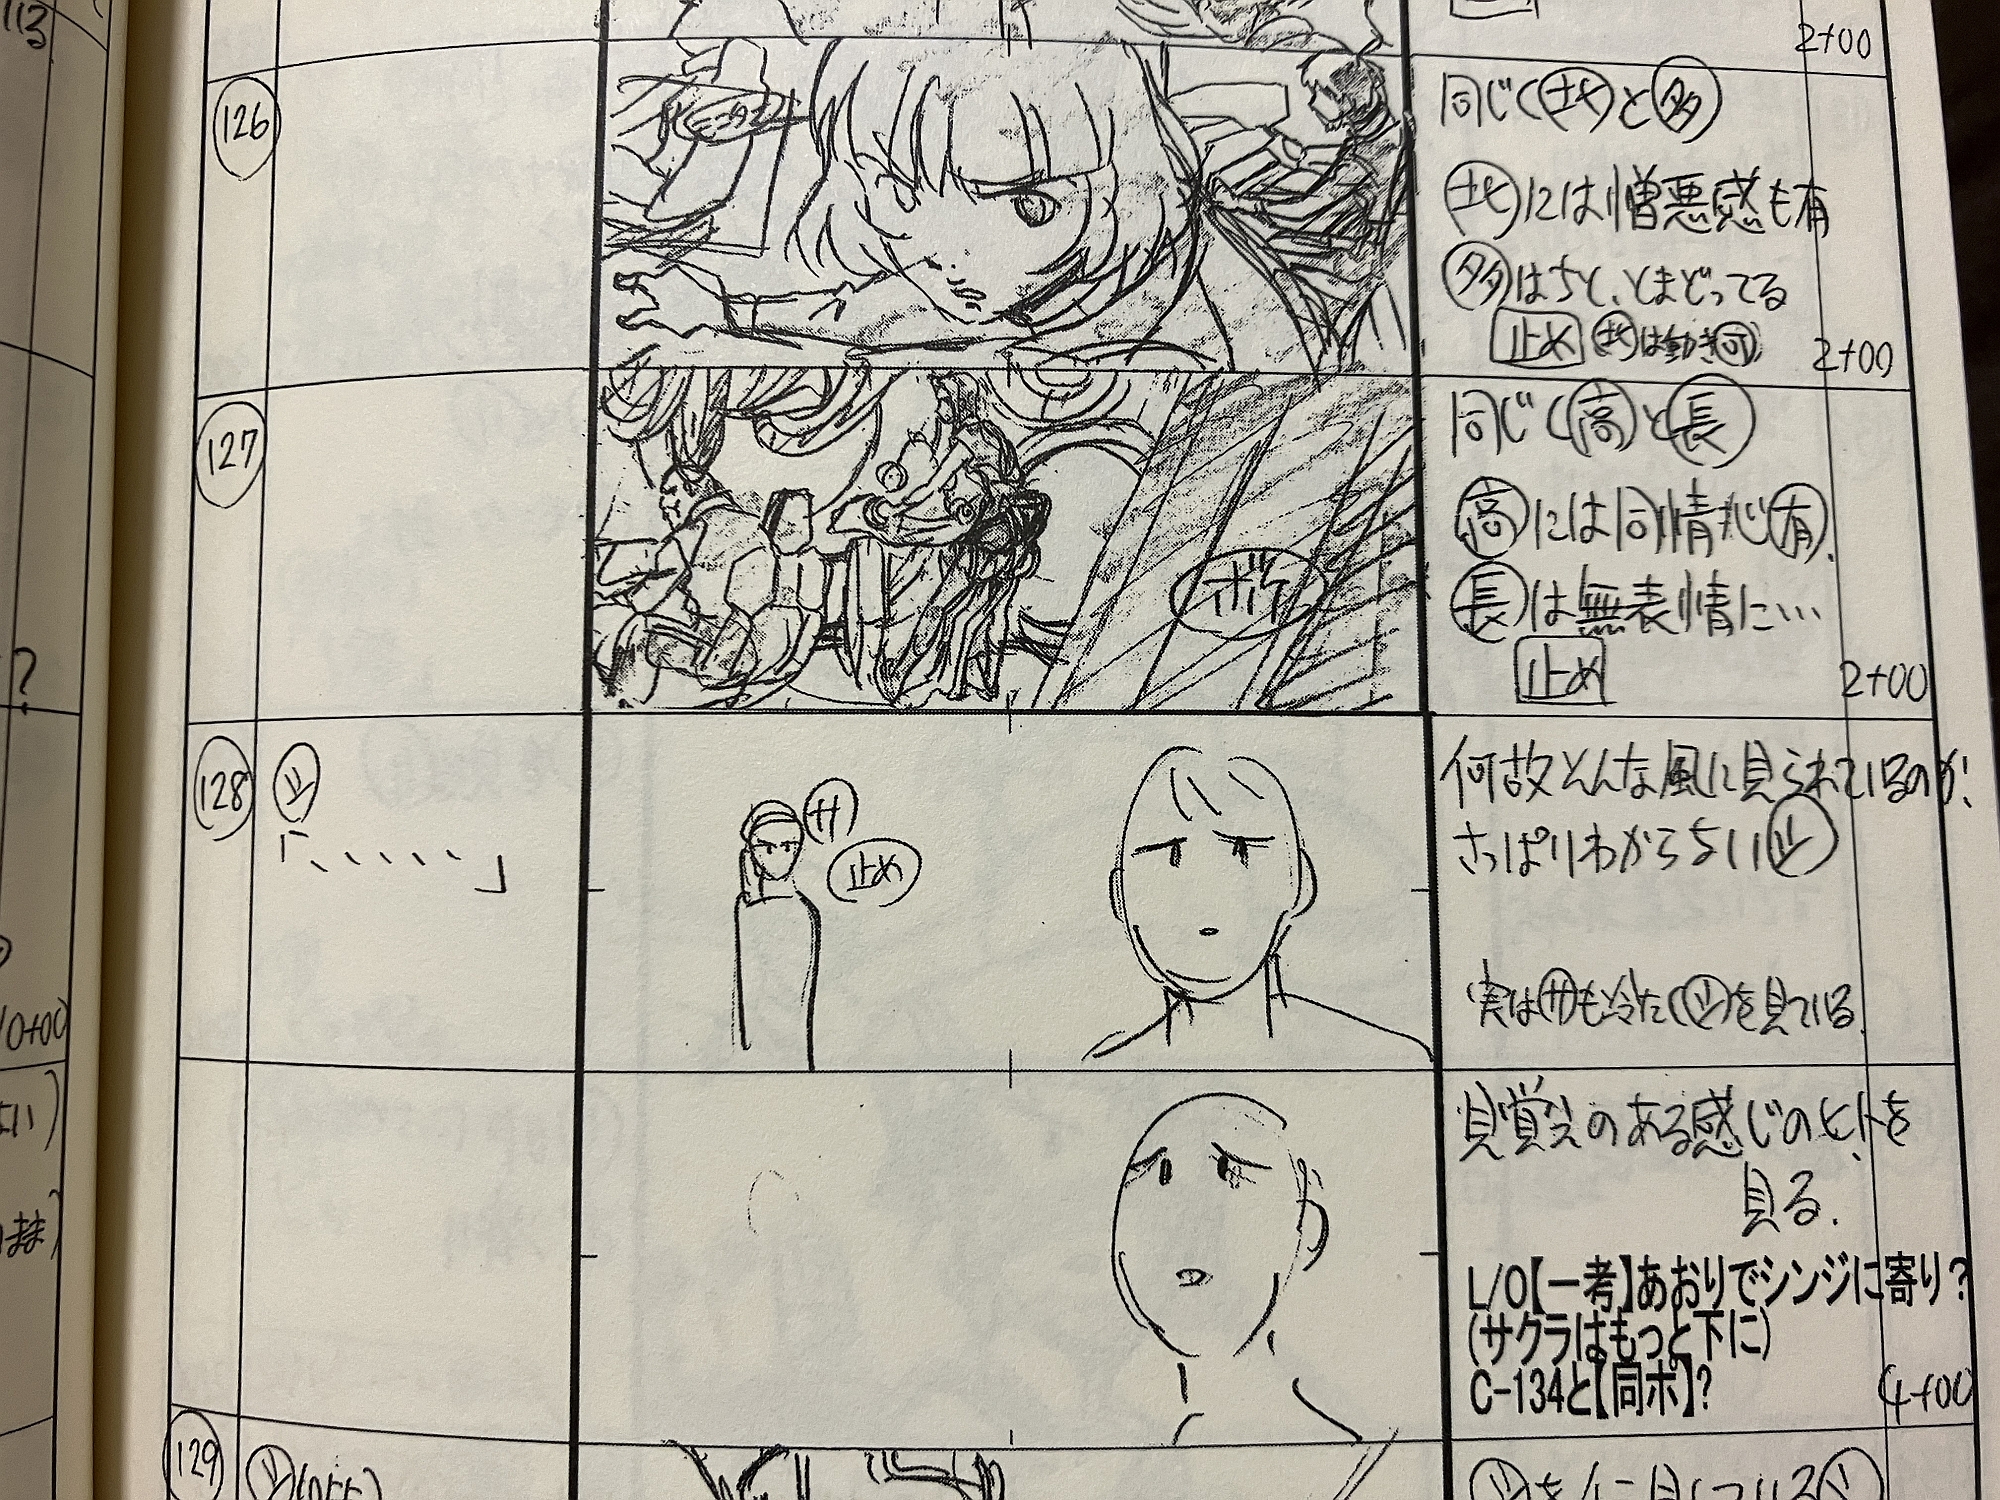 113
2+00
126
同じく北と多
北には憎悪感も有
多はちと、とまどってる
止め 北は動き可
2+00
127
ボケ
同じく高と長
高には同情心有.
長は無表情に…
止め
2+00
128
シ
「、、、、、」
サ
止め
何故そんな風に見られているのか!
さっぱりわからないシ
実はサも冷たくシを見ている.
見覚えのある感じのヒトを
見る.
L/O【一考】あおりでシンジに寄り?
(サクラはもっと下に)
C-134と【同ポ】?
4+00
129
?
10+00